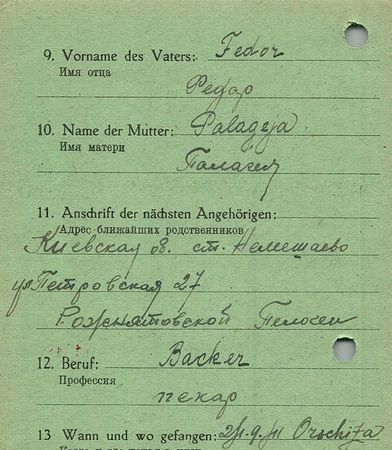 9. Vorname des Vaters: Fedor
Имя отца
Федор
10. Name der Mutter: Palageja
Имя матери
Палагея
11. Anschrift der nächsten Angehörigen:
Адрес ближайших родственников
Киевская об. ст. Немешаево
ул Петровская 27
Рожнятовской Пелогеи
12. Beruf: Backer
Профессия
пекар
13 Wann und wo gefangen: Orschiza